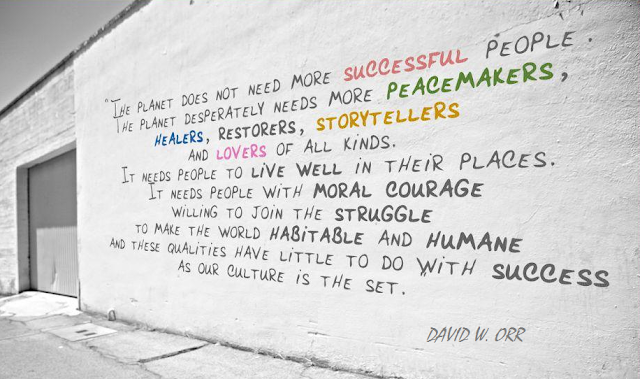 "THE PLANET DOES NOT NEED MORE SUCCESSFUL PEOPLE.
THE PLANET DESPERATELY NEEDS MORE PEACEMAKERS,
HEALERS, RESTORERS, STORYTELLERS
AND LOVERS OF ALL KINDS.
IT NEEDS PEOPLE TO LIVE WELL IN THEIR PLACES.
IT NEEDS PEOPLE WITH MORAL COURAGE
WILLING TO JOIN THE STRUGGLE
TO MAKE THE WORLD HABITABLE AND HUMANE
AND THESE QUALITIES HAVE LITTLE TO DO WITH SUCCESS
AS OUR CULTURE IS THE SET.
DAVID W. ORR